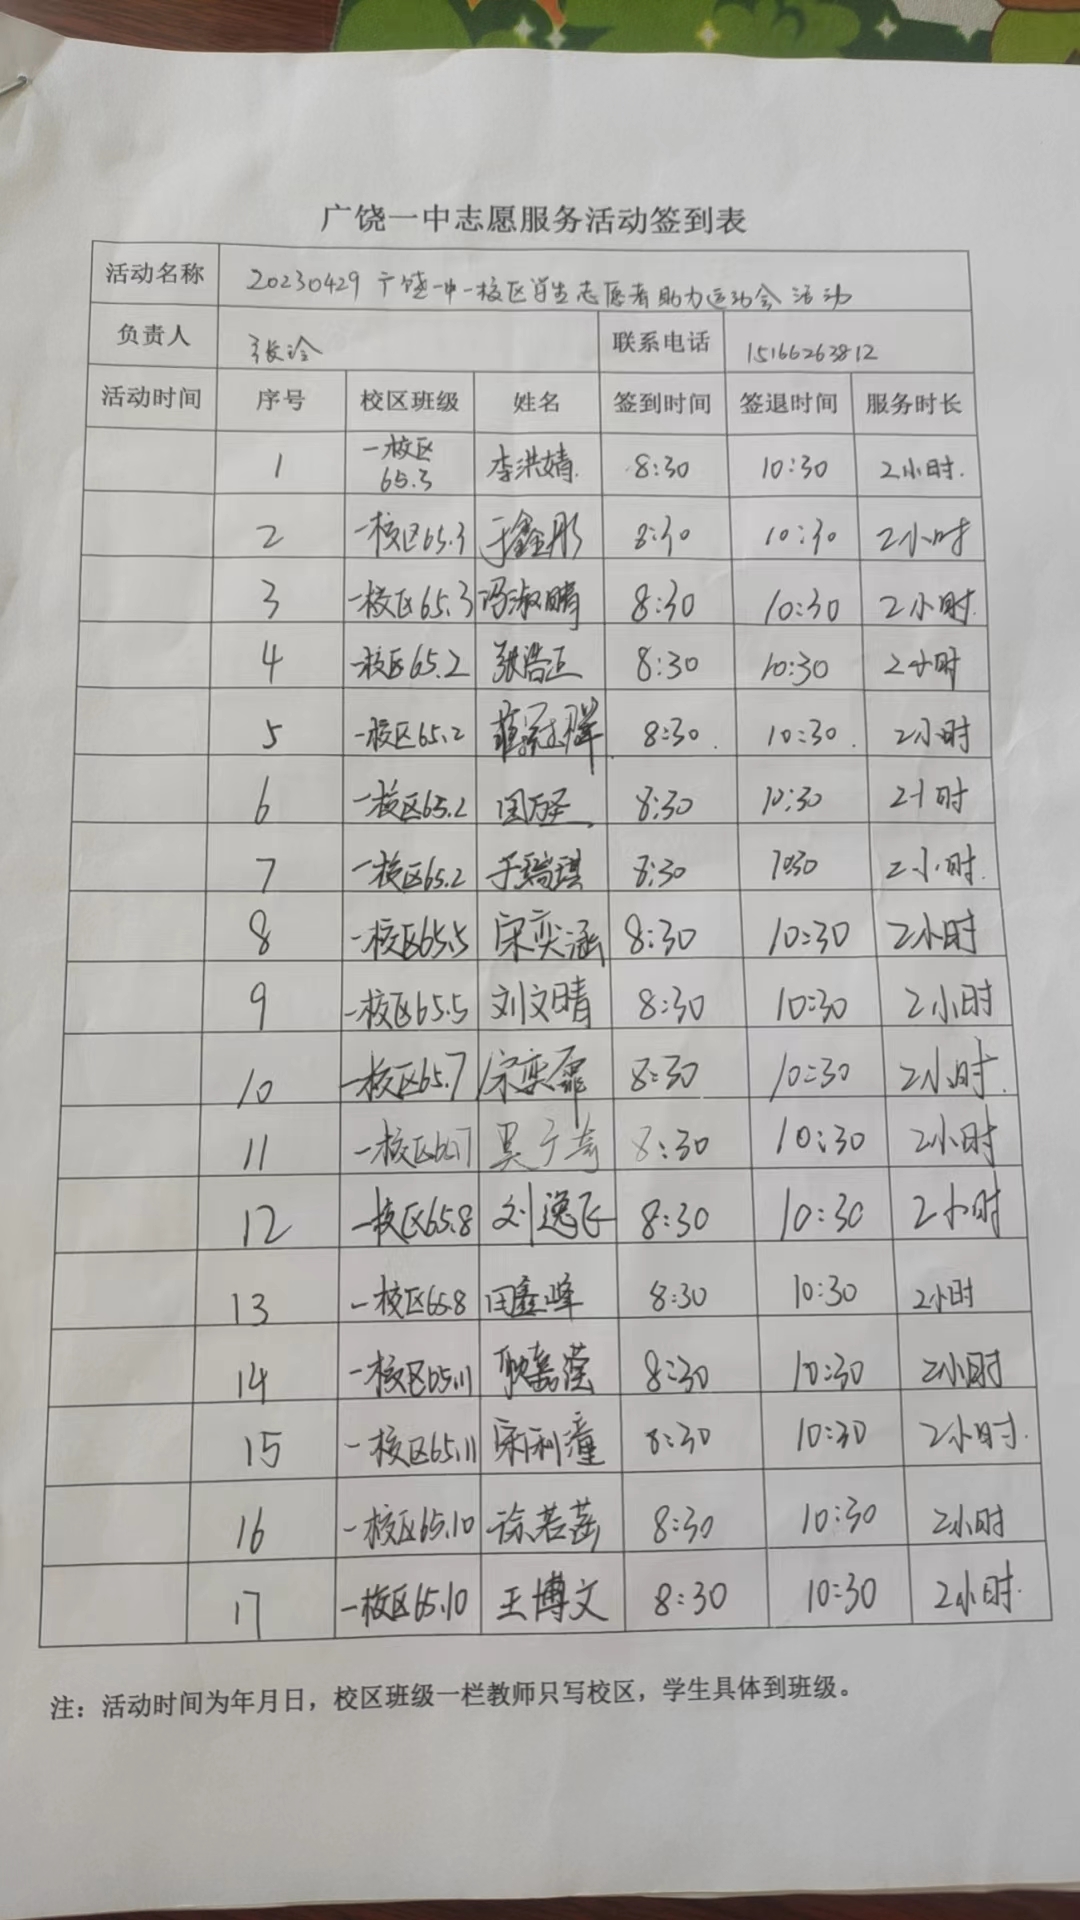 广饶一中志愿服务活动签到表
活动名称 20230429 广饶一中一校区学生志愿者助力运动会活动
负责人 张玲 联系电话 15166263812
活动时间 序号 校区班级 姓名 签到时间 签退时间 服务时长
1 一校区65.3 李洪婧 8:30 10:30 2小时.
2 一校区65.3 于鑫彤 8:30 10:30 2小时
3 一校区65.3 冯淑晴 8:30 10:30 2小时.
4 一校区65.2 张浩正 8:30 10:30 2小时
5 一校区65.2 8:30. 10:30. 2小时
6 一校区65.2 8:30 10:30 2小时
7 一校区65.2 于瑞琪 8:30 1030 2小时.
8 一校区65.5 宋奕涵 8:30 10:30 2小时
9 一校区65.5 刘文晴 8:30 10:30 2小时
10 一校区65.7 宋奕霏 8:30 10:30 2小时.
11 一校区 8:30 10:30 2小时
12 一校区65.8 刘逸飞 8:30 10:30 2小时
13 一校区65.8 8:30 10:30 2小时
14 一校区65.11 耿嘉滢 8:30 10:30 2小时
15 一校区65.11 宋利潼 8:30 10:30 2小时.
16 一校区65.10 徐若菡 8:30 10:30 2小时
17 一校区65.10 王博文 8:30 10:30 2小时.
注：活动时间为年月日，校区班级一栏教师只写校区，学生具体到班级。